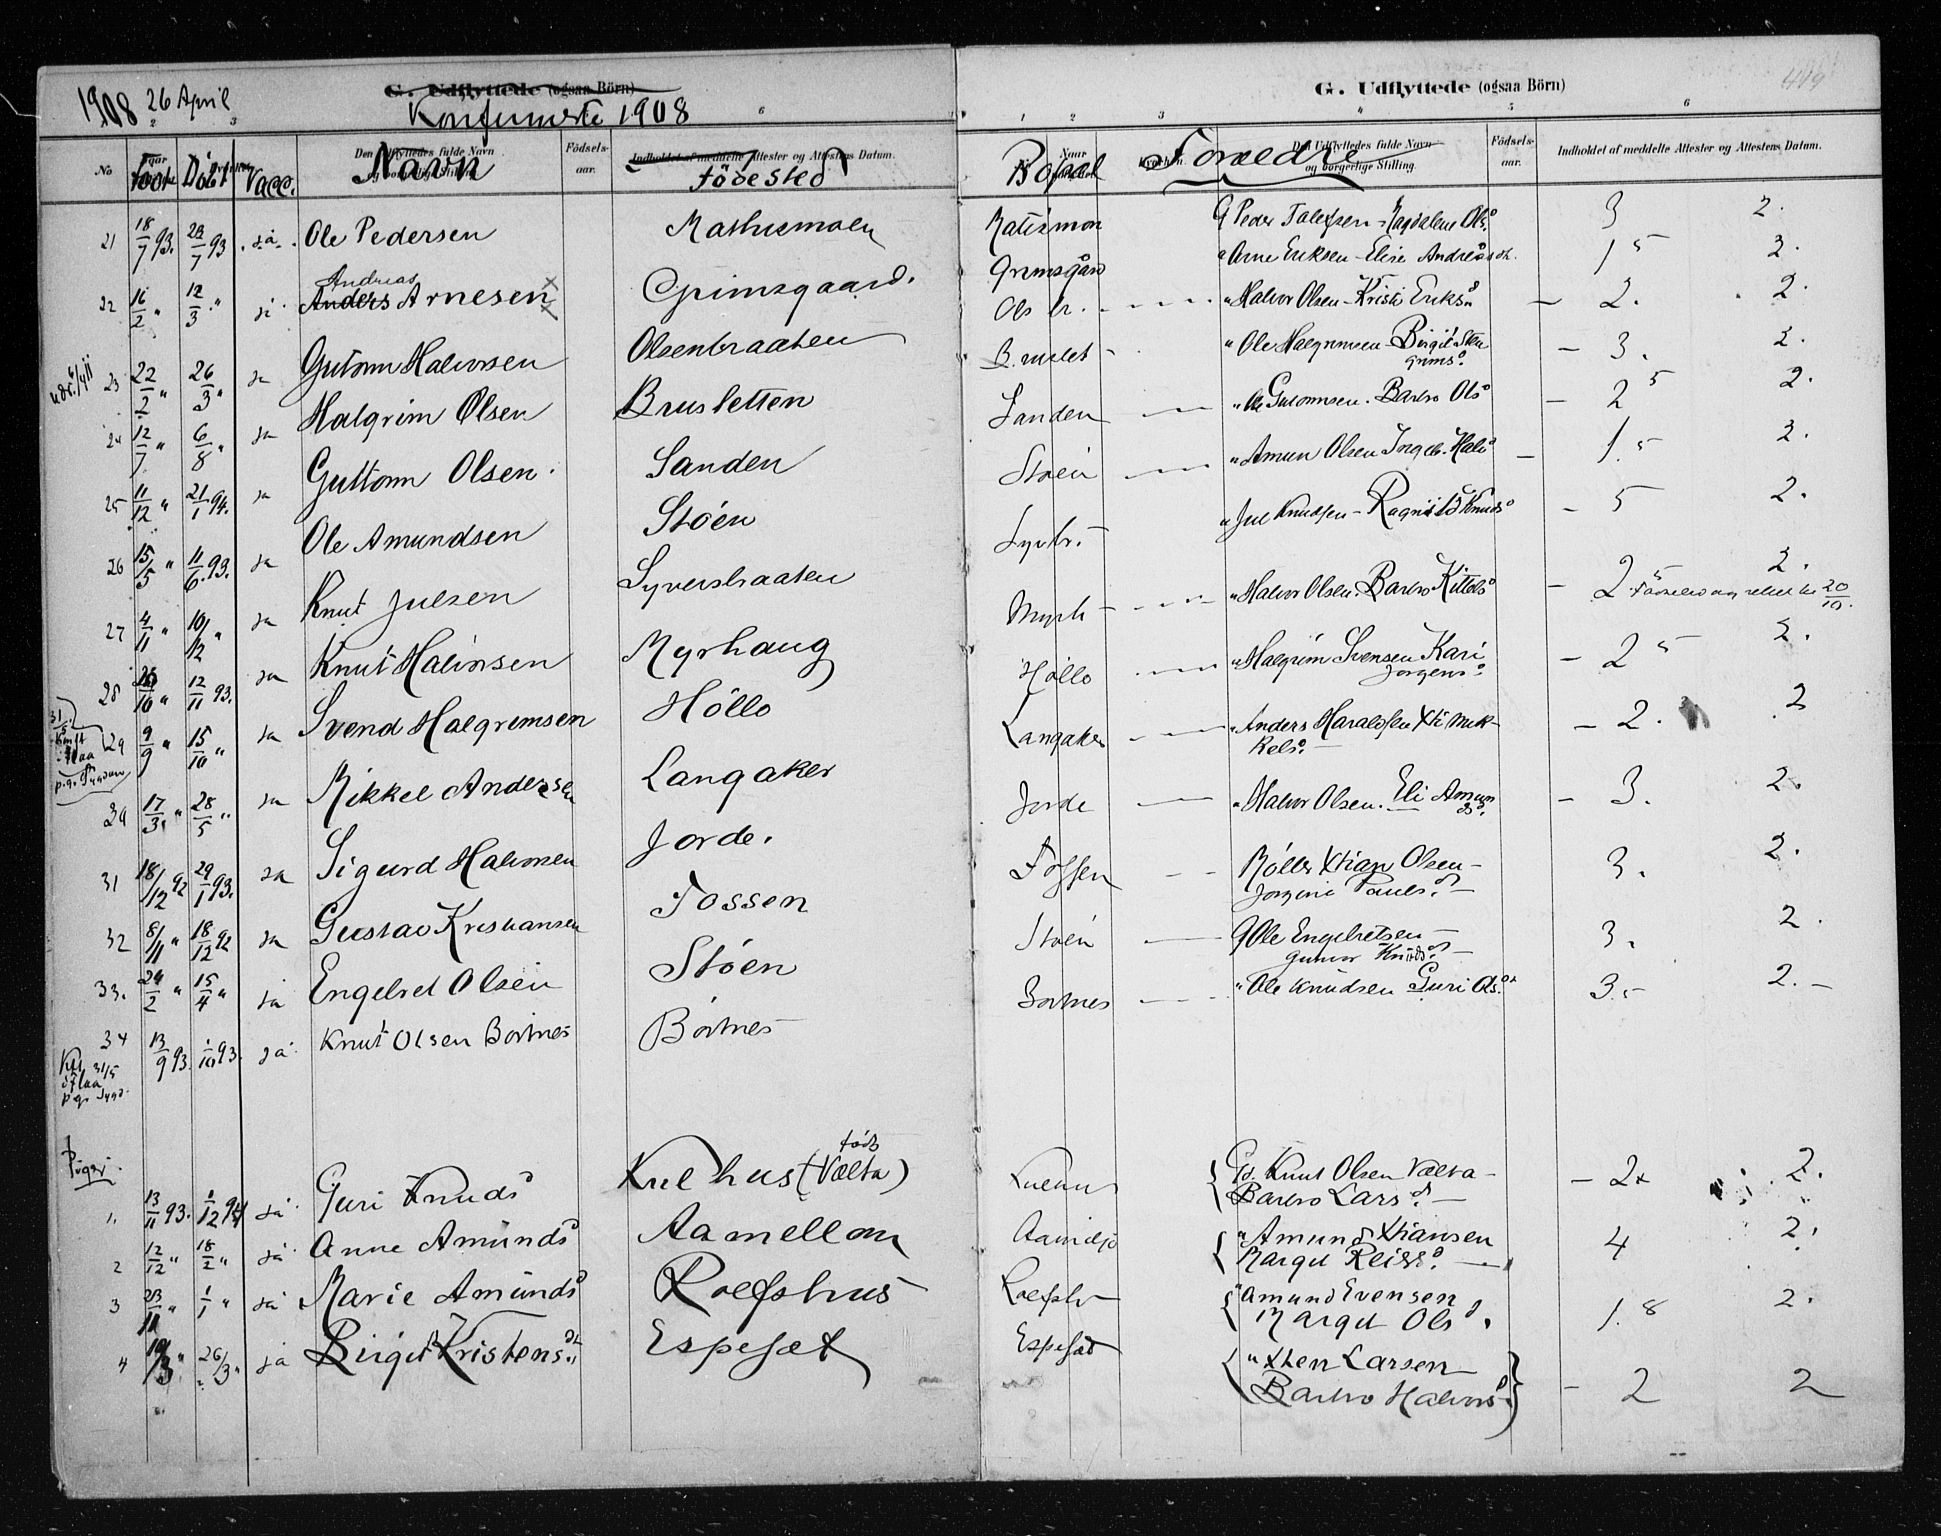 1908 26 April
G. Udflyttede (ogsaa Börn)
Konfirmerte 1908
No Født Döbt Vacc. Navn Fødested
Den Udflyttedes fulde Navn og borgerlige Stilling. Födsels-aar. Indholdet af meddelte Attester og Attestens Datum.
21 18/7 93. 23/7 93 ja. Ole Pedersen
Andreas
22 16/2 " 12/3 " ja Anders Arnesen Grimsgaard.
23 22/2 " 26/3 " ja Guttorm Halvorsen Olsenbraaten
24 12/7 " 6/8 " ja Halgrim Olsen Brusletten
25 11/12 " 21/1 94. ja Guttorm Olsen Sanden
26 15/5 " 11/6 93. ja Ole Amundsen Støen
27 4/11 " 10/12 " ja Knut Julsen Syversbraaten
28 10 " 12/11 93. ja Knut Halvorsen Myrhaug
29 9/9 " 15/10 " ja Svend Halgrimsen Höllo
17/3 " 28/5 " ja Mikkel Andersen Langaker
31 18/12 92 29/1 93. ja Sigurd Halvorsen Jorde.
32 8/11 " 18/12 92 ja Gustav Kristiansen Fossen
33. 24/2 " 15/4 " ja Engebret Olsen Støen
34 13/9 93 1/10 93. ja Knut Olsen Bortnes Bortnes
31/5
i Flaa
Piger.
født
1. 13/11 93. 1/12 ja Guri Knudsd Kulhus (Vælta)
2 12/12 " 18/2 " ja Anne Amundsd Aamellom
3 23/11 " 1/1 " ja Marie Amundsd Rolfshus
4 19/3 " 26/3 " ja Birgit Kristensdt. Espeset
G. Udflyttede (ogsaa Börn)
419
1 2 3 4 5 6
Bopæl Forældre
Den Udflyttedes fulde Navn og borgerlige Stilling. Födsels-aar. Indholdet af meddelte Attester og Attestens Datum.
G Peder Tolefsen - Magdalene Olsd. 3 2.
Grimsgård " Arne Eriksen - Elise Andreasd. 1 5 2.
Ols br. " Halvor Olsen - Kristi Eriksd - 2. 2.
Bruslet " Ole Halgrimsen - Birgit Stengrimsd. - 3. 2.
Sanden " Ole Guttormsen. Barbro Olsd - 2 5 2.
Støen " Amun Olsen Ingeb. Halvd - 1. 5 2.
Syvbr. " Jul Knudsen - Ragnild Knudsd - 5 2.
Myrh " Halvor Olsen. Barbro Kittelsd - 2 5 2. 20/10.
Höllo " Halgrim Svensen Kari Jørgensd. - 2 5 2.
Langaker " Anders Haraldsen Xti Mikkelsd. - 2. 2
Jorde " Halvor Olsen. Eli Amunsd. - 3. 2.
Fossen Møller Xtian Olsen - Jorgine Paulsd. 3. 2.
Støen G Ole Engebretsen - Gunvor Knudsd. 3. 2.
Bortnes " Ole Knudsen Guri Olsd. 3. 2.
Gd. Knut Olsen Vælta - Barbro Larsd. - 2 2.
" Amund Xtiansen Margit Reiersd. 4 2.
Rolfsh " Amund Evensen Margit Olsd. 1. 8 2.
Espeset " Xten Larsen Barbro Halvorsd. - 2 2